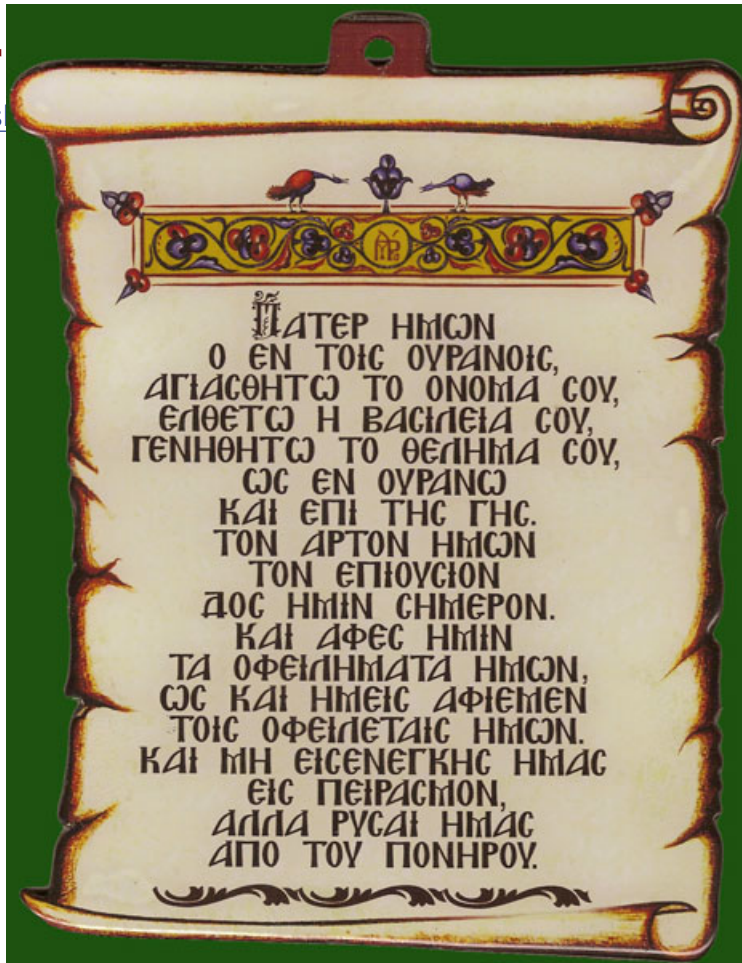 ΠΑΤΕΡ ΗΜΩΝ
Ο ΕΝ ΤΟΙC ΟΥΡΑΝΟΙC,
ΑΓΙΑCΘΗΤΩ ΤΟ ΟΝΟΜΑ CΟΥ,
ΕΛΘΕΤΩ Η ΒΑCΙΛΕΙΑ CΟΥ,
ΓΕΝΗΘΗΤΩ ΤΟ ΘΕΛΗΜΑ CΟΥ,
ΩC ΕΝ ΟΥΡΑΝΩ
ΚΑΙ ΕΠΙ ΤΗC ΓΗC.
ΤΟΝ ΑΡΤΟΝ ΗΜΩΝ
ΤΟΝ ΕΠΙΟΥCΙΟΝ
ΔΟC ΗΜΙΝ CΗΜΕΡΟΝ.
ΚΑΙ ΑΦΕC ΗΜΙΝ
ΤΑ ΟΦΕΙΛΗΜΑΤΑ ΗΜΩΝ,
ΩC ΚΑΙ ΗΜΕΙC ΑΦΙΕΜΕΝ
ΤΟΙC ΟΦΕΙΛΕΤΑΙC ΗΜΩΝ.
ΚΑΙ ΜΗ ΕΙCΕΝΕΓΚΗC ΗΜΑC
ΕΙC ΠΕΙΡΑCΜΟΝ,
ΑΛΛΑ ΡΥCΑΙ ΗΜΑC
ΑΠΟ ΤΟΥ ΠΟΝΗΡΟΥ.